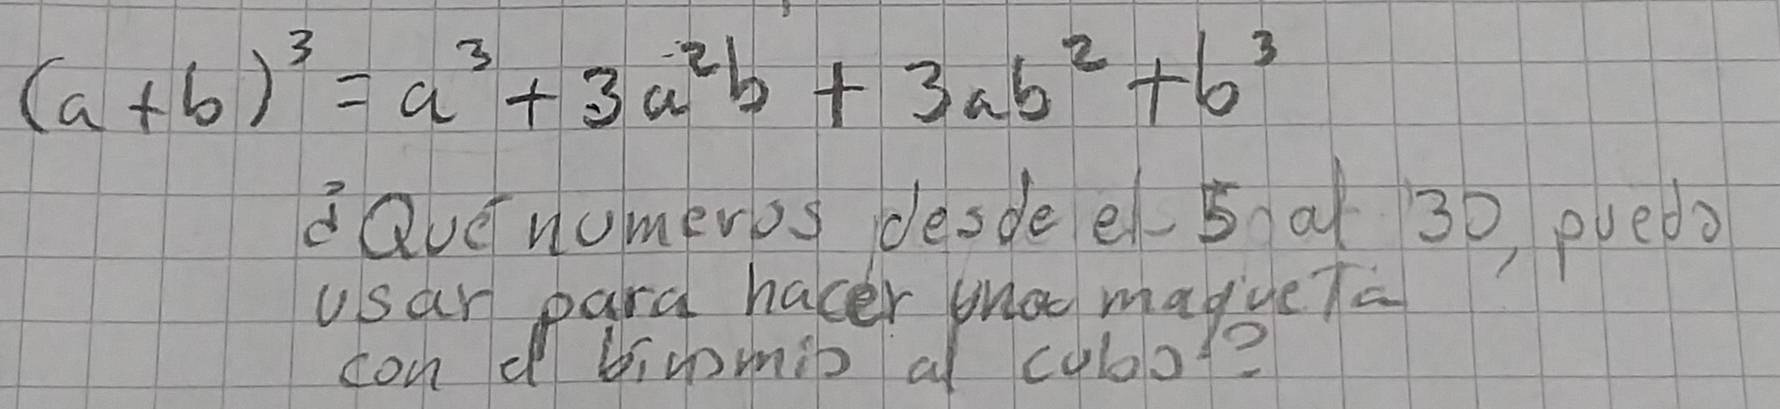 (a+b)³ = a³ + 3a²b + 3ab² + b³
¿Qué numeros desde el 5 al 30, puedo
usar para hacer una maqueta
con el binomio al cubo?